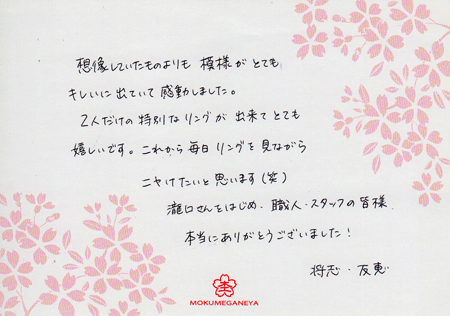 想像していたものよりも 模様が とても
キレイに 出ていて 感動しました。
2人だけの 特別な リングが 出来て とても
嬉しいです。これから 毎日 リングを 見ながら
ニヤけたいと 思います(笑)
瀧口さんをはじめ、職人・スタッフの 皆様
本当に ありがとうございました!
将志・友恵
MOKUMEGANEYA